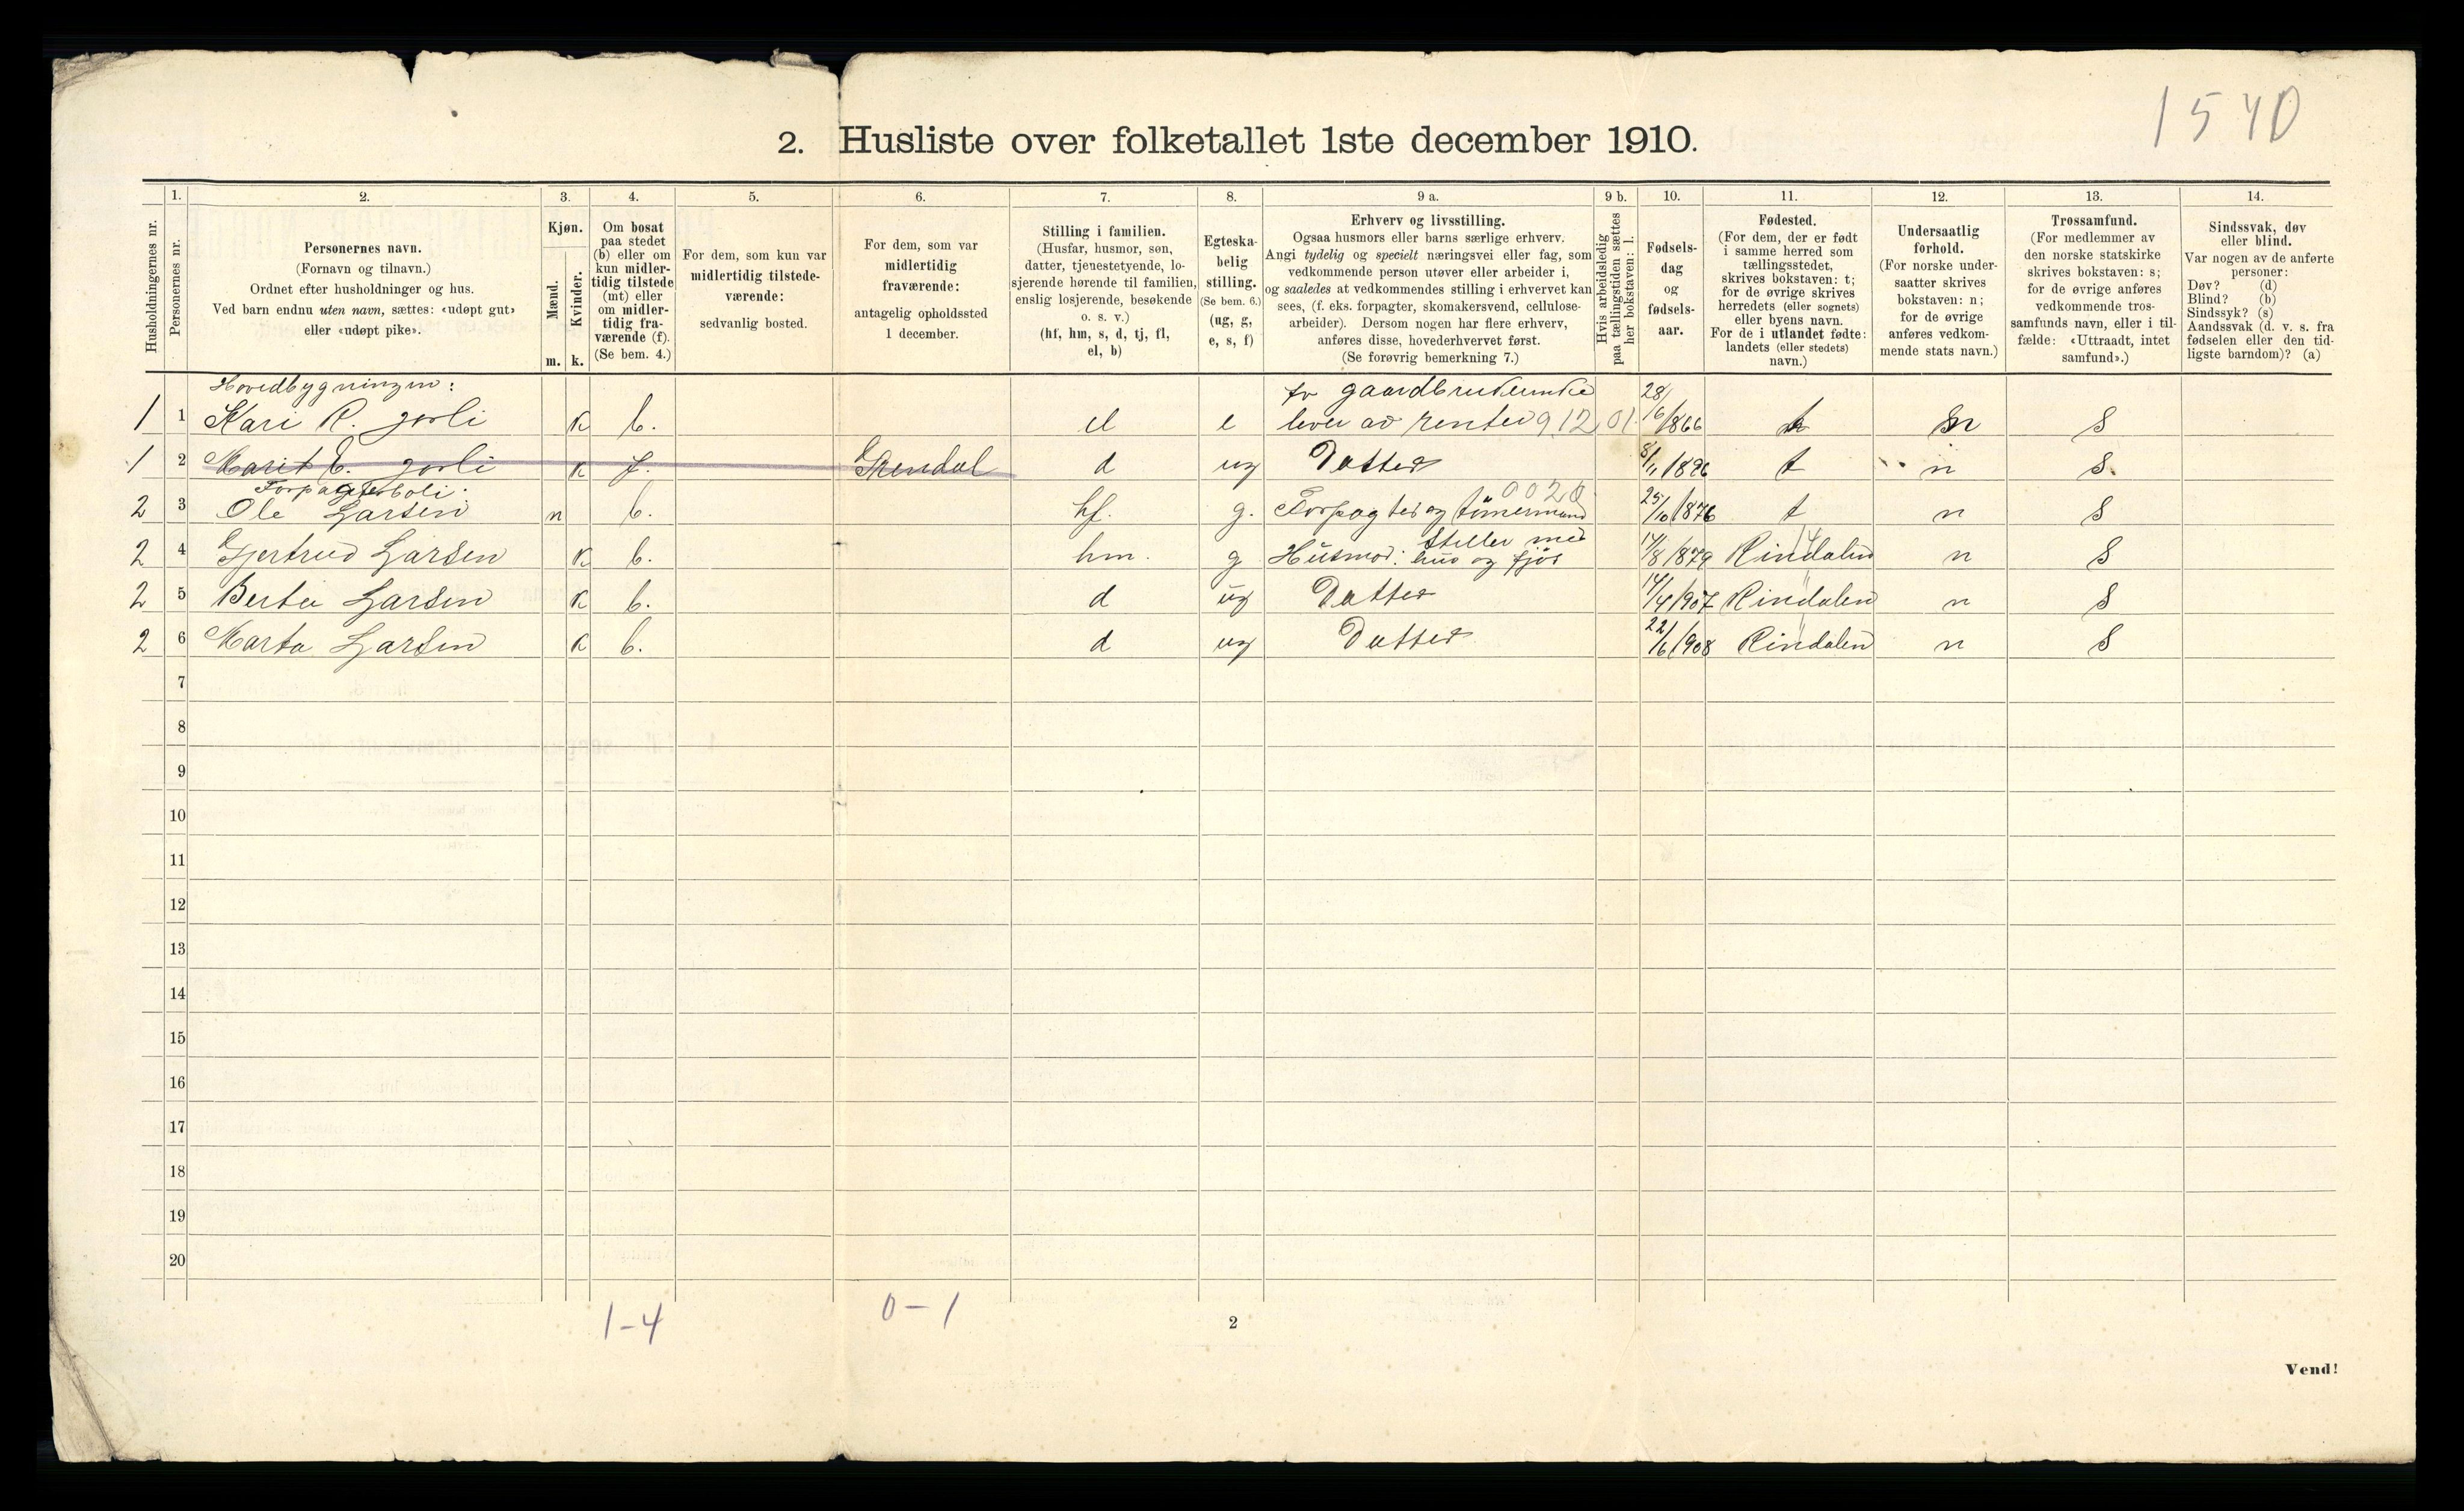 1540
2. Husliste over folketallet 1ste december 1910.
Husholdningernes nr.
1.
Personernes nr.
2.
Personernes navn.
(Fornavn og tilnavn.)
Ordnet efter husholdninger og hus.
Ved barn endnu uten navn, sættes: «udøpt gut»
eller «udøpt pike».
3.
Kjøn.
Mænd.
Kvinder.
m. k.
4.
Om bosat
paa stedet
(b) eller om
kun midler-
tidig tilstede
(mt) eller
om midler-
tidig fra-
værende (f).
(Se bem. 4.)
5.
For dem, som kun var
midlertidig tilstede-
værende:
sedvanlig bosted.
6.
For dem, som var
midlertidig
fraværende:
antagelig opholdssted
1 december.
7.
Stilling i familien.
(Husfar, husmor, søn,
datter, tjenestetyende, lo-
sjerende hørende til familien,
enslig losjerende, besøkende
o. s. v.)
(hf, hm, s, d, tj, fl,
el, b)
8.
Egteska-
belig
stilling.
(Se bem. 6.)
(ug, g,
e, s, f)
9 a.
Erhverv og livsstilling.
Ogsaa husmors eller barns særlige erhverv.
Angi tydelig og specielt næringsvei eller fag, som
vedkommende person utøver eller arbeider i,
og saaledes at vedkommendes stilling i erhvervet kan
sees, (f. eks. forpagter, skomakersvend, cellulose-
arbeider). Dersom nogen har flere erhverv,
anføres disse, hovederhvervet først.
(Se forøvrig bemerkning 7.)
9 b.
Hvis arbeidsledig
paa tællingstiden sættes
her bokstaven: l.
10.
Fødsels-
dag
og
fødsels-
aar.
11.
Fødested.
(For dem, der er født
i samme herred som
tællingsstedet,
skrives bokstaven: t;
for de øvrige skrives
herredets (eller sognets)
eller byens navn.
For de i utlandet fødte:
landets (eller stedets)
navn.)
12.
Undersaatlig
forhold.
(For norske under-
saatter skrives
bokstaven: n;
for de øvrige
anføres vedkom-
mende stats navn.)
13.
Trossamfund.
(For medlemmer av
den norske statskirke
skrives bokstaven: s;
for de øvrige anføres
vedkommende tros-
samfunds navn, eller i til-
fælde: «Uttraadt, intet
samfund».)
14.
Sindssvak, døv
eller blind.
Var nogen av de anførte
personer:
Døv? (d)
Blind? (b)
Sindssyk? (s)
Aandssvak (d. v. s. fra
fødselen eller den tid-
ligste barndom)? (a)
Hovedbygningen:
1 1 Kari R. Jorli k b. el e lever av renter 912 01. 1866 n s
1 2 Marit E. Jorli k f. Grendal d ug Datter 8/11 1896 t n s.
Forpagterboli:
2 3 Ole Larsen m b. hf. g. Forpagter og tömermand 0020 25/10 1876 t n s
2 4 Gjertrud Larsen k b. hm. g Husmor: Steller med hus og fjös 14/8 1879 Rindalen 14 n s
2 5 Berta Larsen k b. d ug Datter 14/4 1907 Rindalen " n s
2 6 Marta Larsen k b. d ug Datter 22/6 1908 Rindalen " n s
7
8
9
10
11
12
13
14
15
16
17
18
19
20
1-4
0-1
2
Vend!